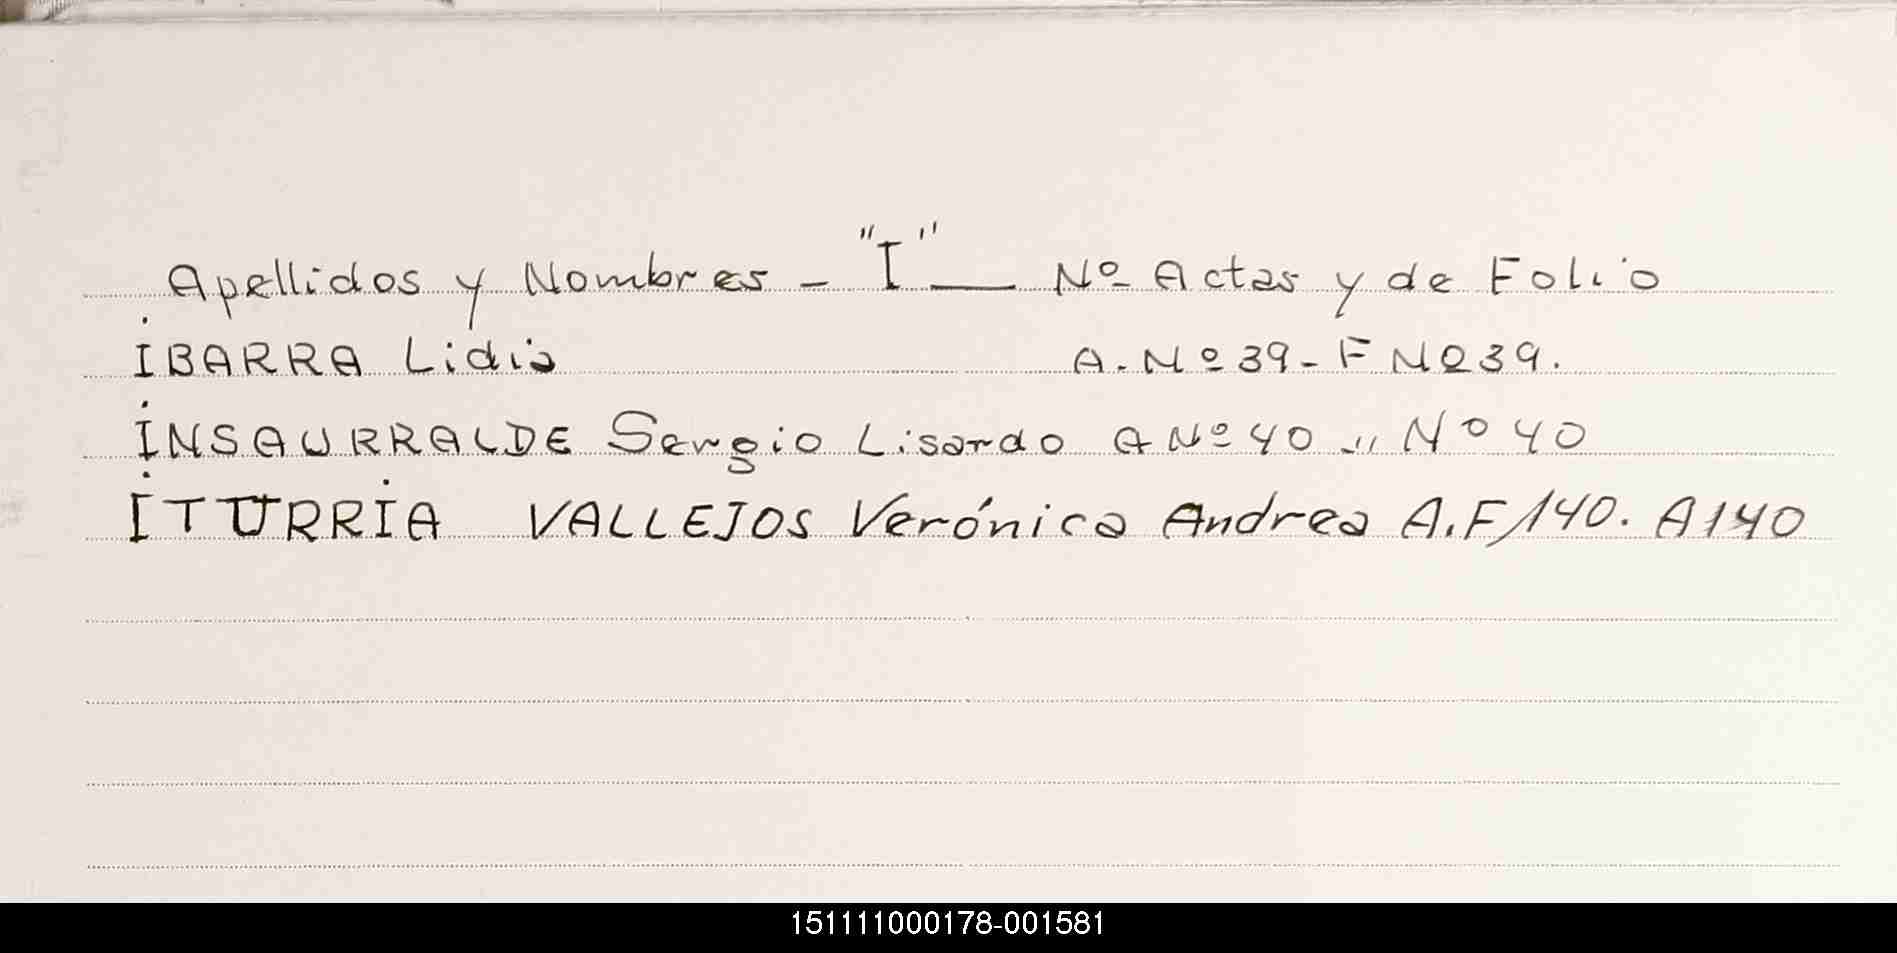 Apellidos y Nombres - "I" — Nº Actas y de Folio
IBARRA Lidia A. Nº 39 - F Nº 39.
INSAURRALDE Sergio Lisardo A Nº 40 -"- Nº 40
ITURRIA VALLEJOS Verónica Andrea A.F/140. A140
151111000178-001581